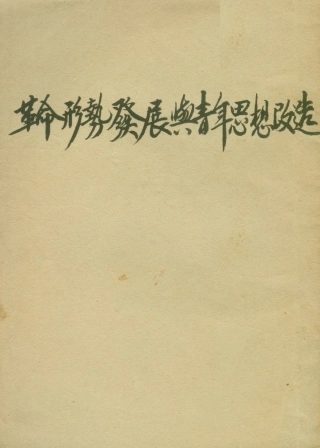 革命形勢發展與青年思想改造